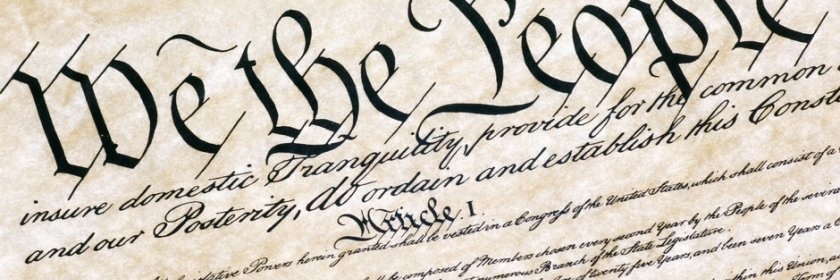 We the People
insure domestic Tranquility, provide for the common
and our Posterity, do ordain and establish this Const
Article. I.
Powers herein granted shall be vested in a Congress of the United States, which shall consist of a
composed of Members chosen every second Year by the People of the several
numerous Branch of the State Legislature.
of twenty five Years, and been seven Years a
within this Union,